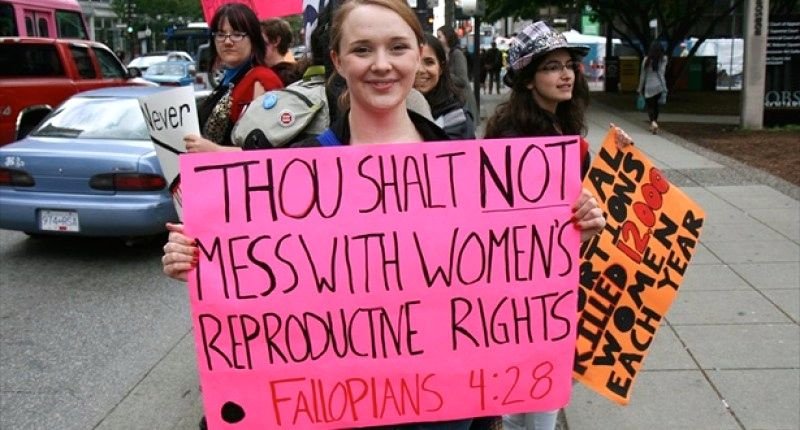 Never
THOU SHALT NOT
MESS WITH WOMEN'S
REPRODUCTIVE RIGHTS
FALLOPIANS 4:28
KILLED 12,000
WOMEN
EACH YEAR
ROBSON